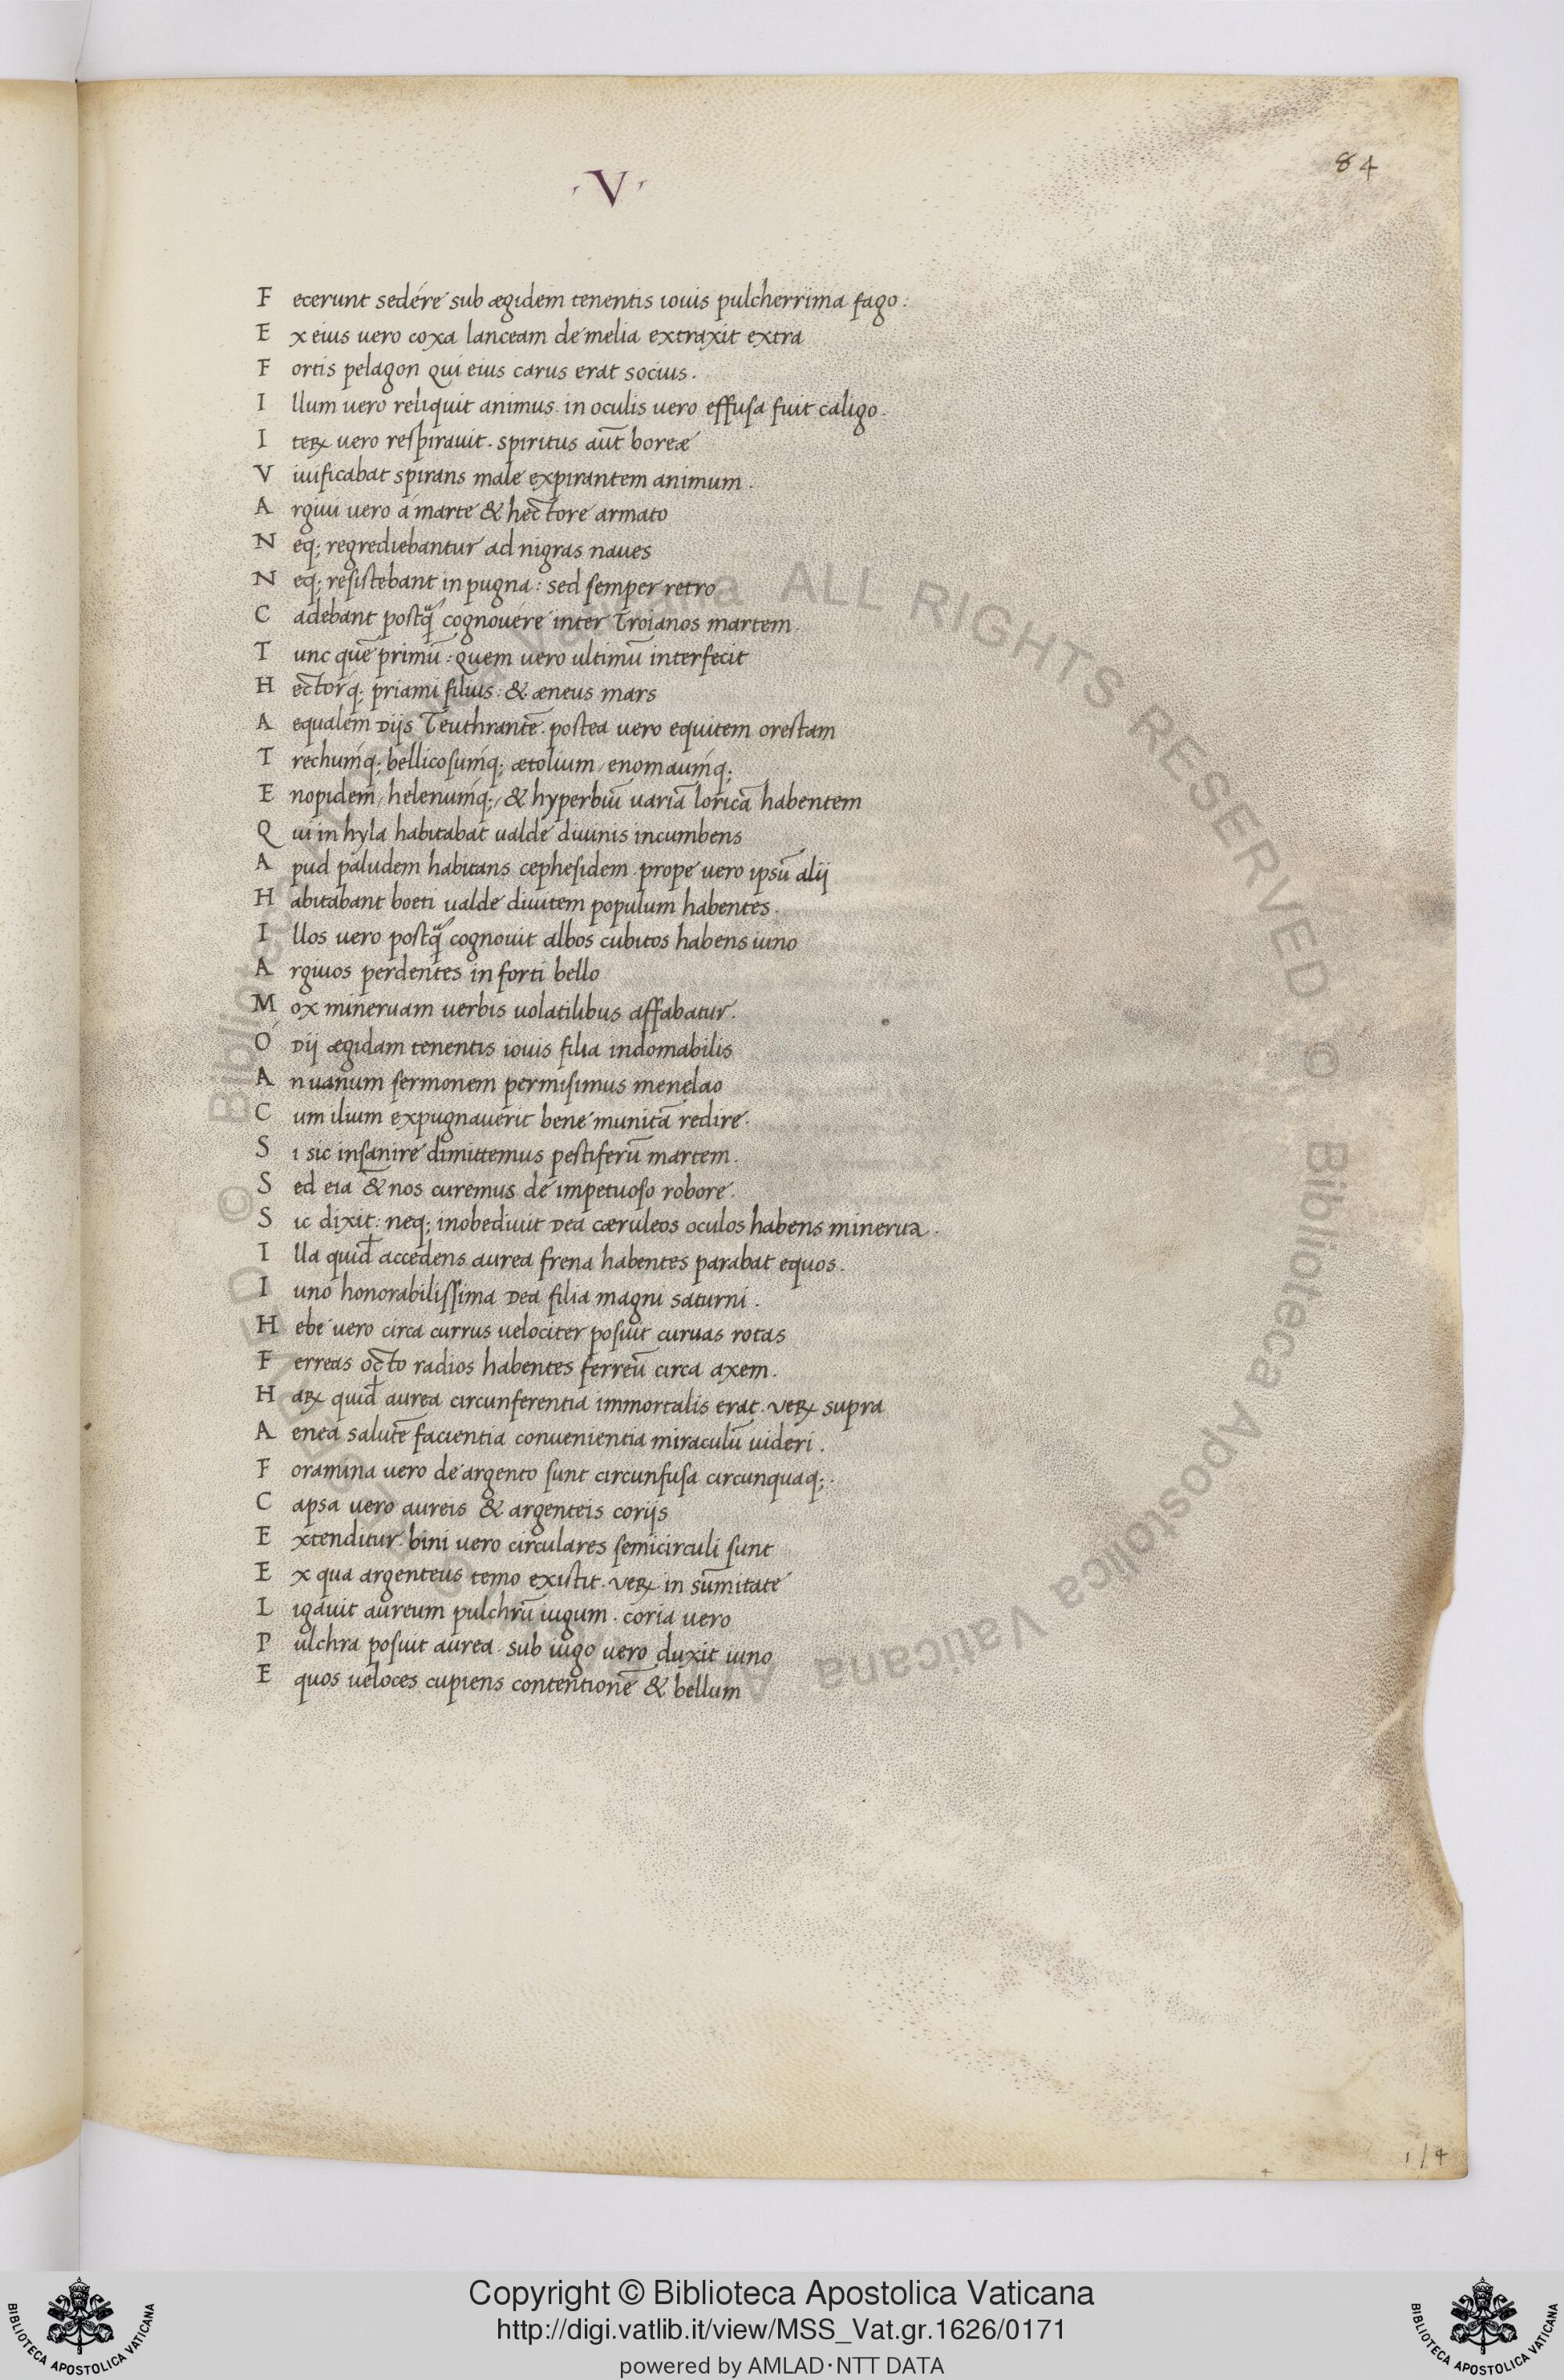 84
·V·
Fecerunt sedére sub ægidem tenentis iouis pulcherrima fago :
Ex eius uero coxa lanceam de melia extraxit extra
Fortis pelagon qui eius carus erat socius .
Illum uero reliquit animus. in oculis uero effusa fuit caligo .
Iteꝝ uero respirauit . spiritus aūt boreæ
Viuificabat spirans male expirantem animum .
Argiui uero á marte & hectore armato
Neq; regrediebantur ad nigras naues
Neq; resistebant in pugna : sed semper retro
Cadebant postꝙ̃ cognouére inter Troianos martem .
Tunc quē primū : quem uero ultimū interfecit
Hectorq; priami filius : & æneus mars
Aequalem Diis Teuthrantē . postea uero equitem orestam
Trechumq́; bellicosumq́; ætolium / enomaumq́;
Enopidem / helenumq́; / & hyperbiū uariā loricā habentem
Qui in hyla habitabat ualde diuinis incumbens
Apud paludem habitans cephesidem . prope uero ipsū alij
Habitabant boeti ualde diuitem populum habentes .
Illos uero postꝙ̃ cognouit albos cubitos habens iuno
Argiuos perdentes in forti bello
Mox mineruam uerbis uolatilibus affabatur .
Ó Dij ægidam tenentis iouis filia indomabilis
An uanum sermonem permisimus menelao
Cum ilium expugnauerit bene munitā redire .
Si sic insanire dimittemus pestiferū martem .
Sed eia & nos curemus de impetuoso robore .
Sic dixit : neq; inobediuit Dea cæruleos oculos habens minerua .
Illa quid̄ accedens aurea frena habentes parabat equos .
Iuno honorabilissima Dea filia magni saturni .
Hebe uero circa currus uelociter posuit curuas rotas
Ferreas octo radios habentes ferreū circa axem .
Haꝝ quid̄ aurea circunferentia immortalis erat . veꝝ supra
Aenea salutē facientia conuenientia miraculū uideri .
Foramina uero de argento sunt circunfusa circunquaq; .
Capsa uero aureis & argenteis corijs
Extenditur . bini uero circulares semicirculi sunt
Ex qua argenteus temo existit . veꝝ in sūmitate
Ligauit aureum pulchrū iugum . coria uero
Pulchra posuit aurea . sub iugo uero duxit iuno
Equos ueloces cupiens contentionē & bellum
1/4
© Biblioteca Apostolica Vaticana ALL RIGHTS RESERVED © Biblioteca Apostolica Vaticana
Copyright © Biblioteca Apostolica Vaticana
http://digi.vatlib.it/view/MSS_Vat.gr.1626/0171
powered by AMLAD·NTT DATA
BIBLIOTECA APOSTOLICA VATICANA
BIBLIOTECA APOSTOLICA VATICANA